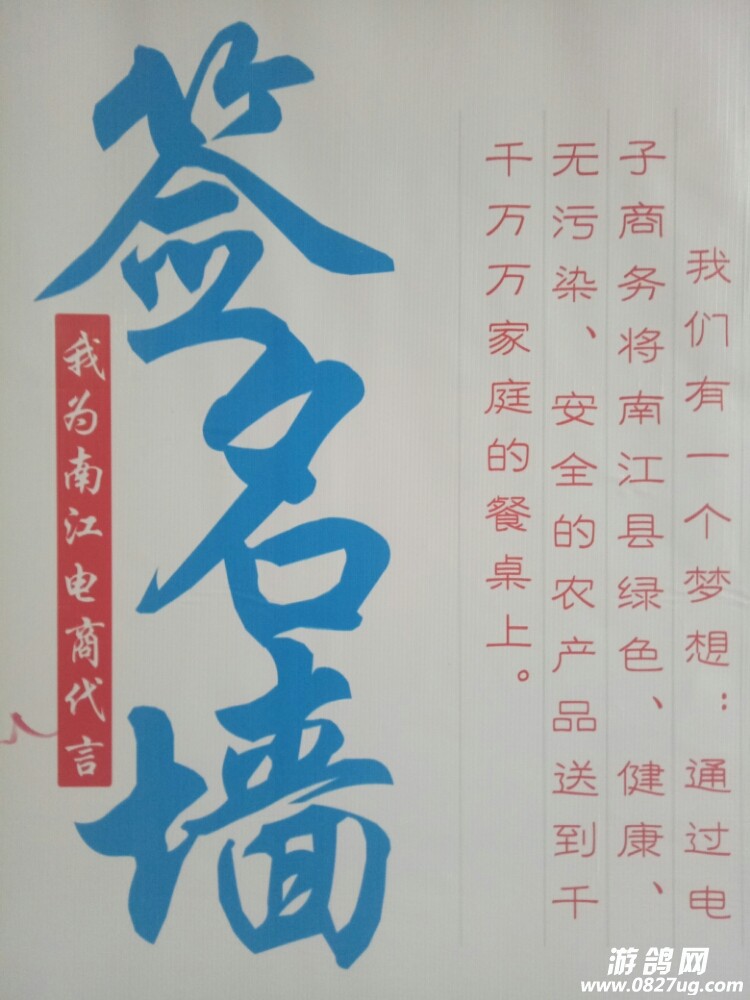 签名墙
我为南江电商代言
我们有一个梦想：通过电
子商务将南江县绿色、健康、
无污染、安全的农产品送到千
千万万家庭的餐桌上。
游鸽网
www.0827ug.com